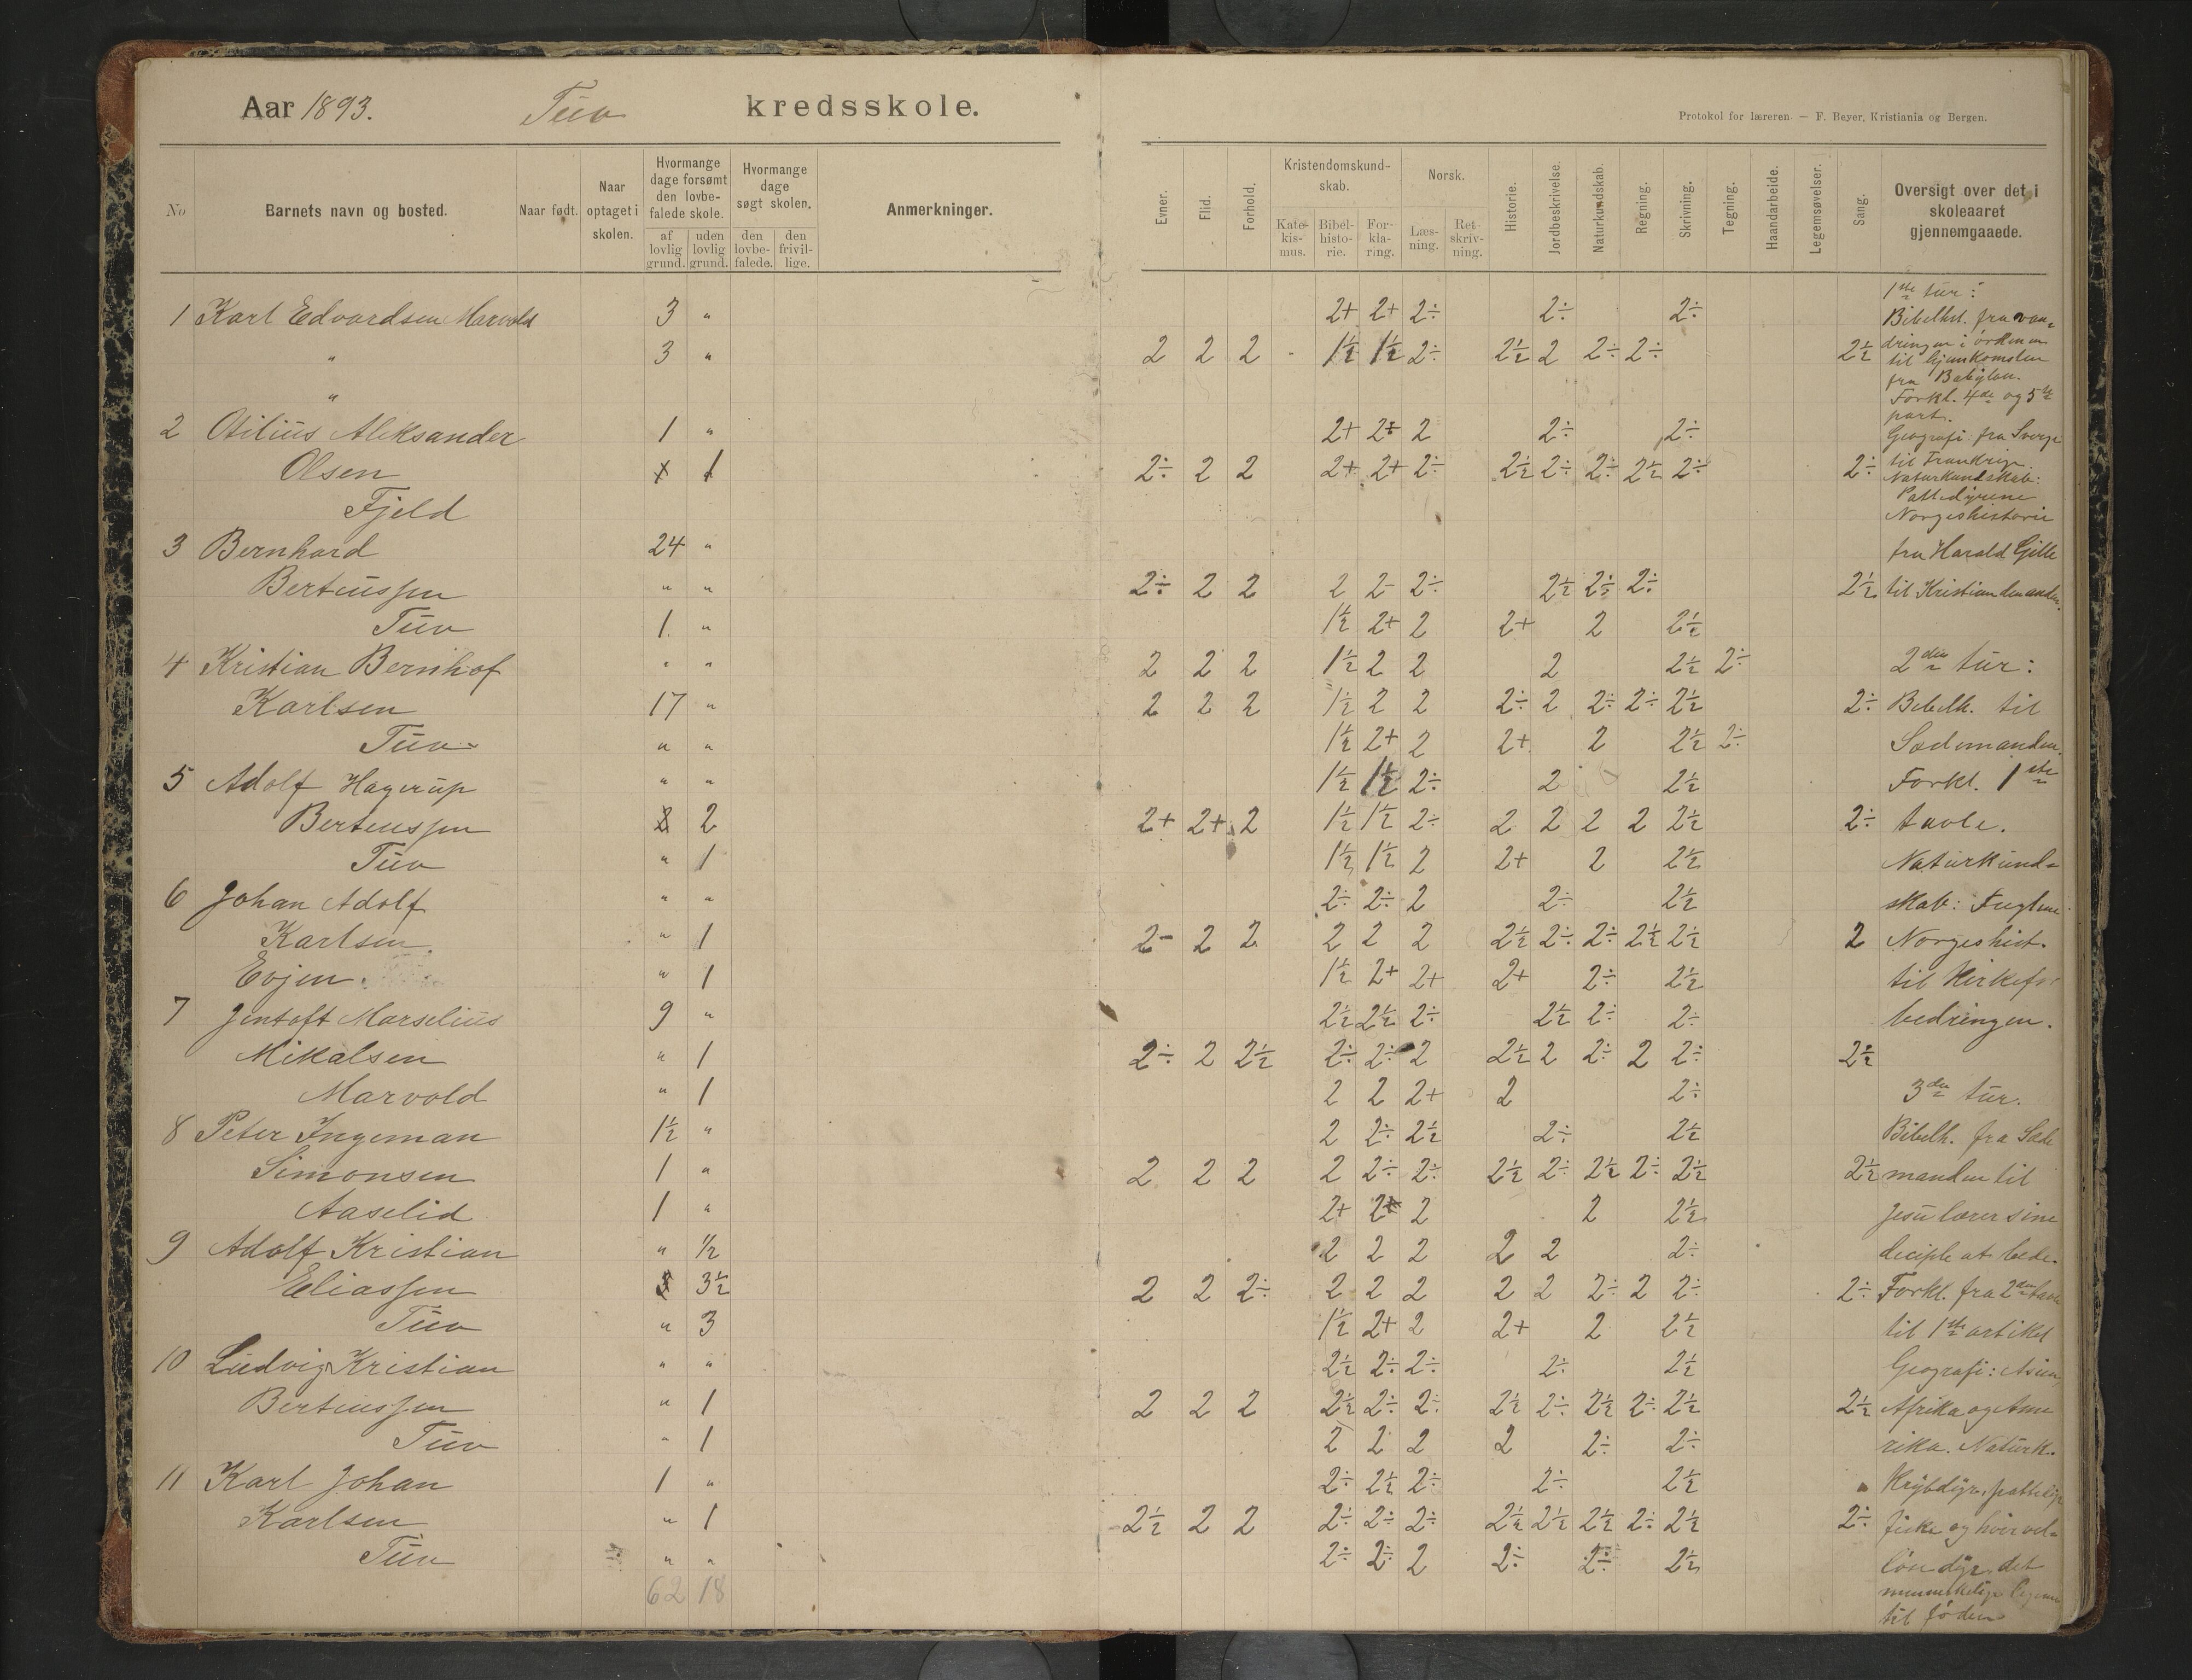 Aar 1893. Tuv kredsskole.
Protokol for læreren. — F. Beyer, Kristiania og Bergen.
No
Barnets navn og bosted.
Naar født.
Naar optaget i skolen.
Hvormange dage forsømt den lovbefalede skole.
af lovlig grund.
uden lovlig grund.
Hvormange dage søgt skolen.
den lovbefalede.
den frivillige.
Anmerkninger.
Evner.
Flid.
Forhold.
Kristendomskundskab.
Katekismus.
Bibelhistorie.
Forklaring.
Norsk.
Læsning.
Retskrivning.
Historie.
Jordbeskrivelse.
Naturkundskab.
Regning.
Skrivning.
Tegning.
Haandarbeide.
Legemsøvelser.
Sang.
Oversigt over det i skoleaaret gjennemgaaede.
1 Karl Edvardsen Marvold 3 " 2+ 2+ 2÷ 2÷ 2÷
" 3 " 2 2 2 - 1½ 1½ 2÷ 2½ 2 2÷ 2÷ 2½
"
2 Otilius Aleksander 1 " 2+ 2÷ 2 2÷ 2÷
Olsen 1 2÷ 2 2 2+ 2+ 2÷ 2½ 2÷ 2÷ 2½ 2÷ 2÷
Fjeld
3 Bernhard 24 "
Berteussen " " 2÷ 2 2 2 2- 2÷ 2½ 2½ 2÷ 2½
Tuv 1 " 1½ 2+ 2 2+ 2 2½
4 Kristian Bernhof " " 2 2 2 1½ 2 2 2 2½ 2÷
Karlsen 17 " 2 2 2 1½ 2 2 2÷ 2 2÷ 2÷ 2½ 2÷
Tuv " " 1½ 2+ 2 2+ 2 2½ 2÷
5 Adolf Hagerup " " 1½ 1½ 2÷ 2 2½
Berteussen 2 2+ 2+ 2 1½ 1½ 2÷ 2 2 2 2 2½ 2÷
Tuv " 1 1½ 1½ 2 2+ 2 2½
6 Johan Adolf " " 2÷ 2÷ 2 2÷ 2½
Karlsen. " 1 2- 2 2 2 2 2 2½ 2÷ 2÷ 2½ 2½ 2
Evjen. " 1 1½ 2+ 2+ 2+ 2÷ 2½
7 Jentoft Marselius 9 " 2½ 2½ 2÷ 2½ 2÷ 2÷
Mikalsen " 1 2÷ 2 2½ 2÷ 2÷ 2 2½ 2 2÷ 2 2÷ 2½
Marvold " 1 2 2 2+ 2 2÷
8 Peter Ingeman 1½ " 2 2÷ 2½ 2÷ 2½
Simonsen 1 " 2 2 2 2 2÷ 2÷ 2½ 2÷ 2½ 2÷ 2½ 2½
Aaselid 1 " 2+ 2+ 2 2 2½
9 Adolf Kristian " ½ 2 2 2 2 2 2÷
Eliassen 3½ 2 2 2÷ 2 2 2 2 2 2÷ 2 2÷ 2÷
Tuv " 3 1½ 2+ 2 2+ 2 2½
10 Ludvig Kristian " " 2½ 2÷ 2÷ 2÷ 2½
Berteussen " 1 2 2 2 2½ 2÷ 2÷ 2½ 2÷ 2½ 2÷ 2½ 2½
Tuv " 1 2 2 2 2 2÷ 2÷
11 Karl Johan 1 " 2÷ 2½ 2÷ 2÷ 2½
Karlsen " 1 2½ 2 2 2÷ 2÷ 2÷ 2½ 2½ 2½ 2÷ 2½ 2÷
Tuv " " 2÷ 2÷ 2 2÷ 2÷ 2½
62 18
1ste tur:
Bibelhst. fra van-
dringen i ørkenen
til hjemkomsten
fra Babylon.
Forkl. 4de og 5te
part.
Geografi fra Sverge
til Frankrige.
Naturkundskab:
Pattedyrene
Norgeshistorie
fra Harald Gille
til Kristian den anden.
2den tur:
Bibelh. til
Sædemanden.
Forkl. 1ste
tavle.
Naturkund-
skab: Fuglene
Norgeshist.
til Kirkefor
bedringen.
3die tur.
Bibelh. fra Sæde
manden til
Jesu lærer sine
deciple at bede.
Forkl. fra 2den tavle
til 1ste artikel
Geografi: Asien,
Afrika og Ame
rika. Naturk.
Krybdyr,
fiske og hvirvel-
løse dyr, det
menneskelige legeme
til føden